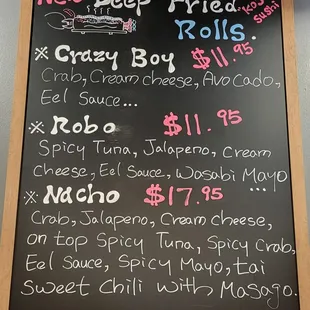 New Deep Fried
Rolls.
Sushi
※ Crazy Boy $11.95
Crab, Cream cheese, Avocado,
Eel Sauce...
※ Robo $11.95
Spicy Tuna, Jalapeno, Cream
cheese, Eel Sauce, Wasabi Mayo
...
※ Nacho $17.95
Crab, Jalapeno, Cream cheese,
on top Spicy Tuna, Spicy Crab,
Eel Sauce, Spicy Mayo, tai
sweet chili with Masago.